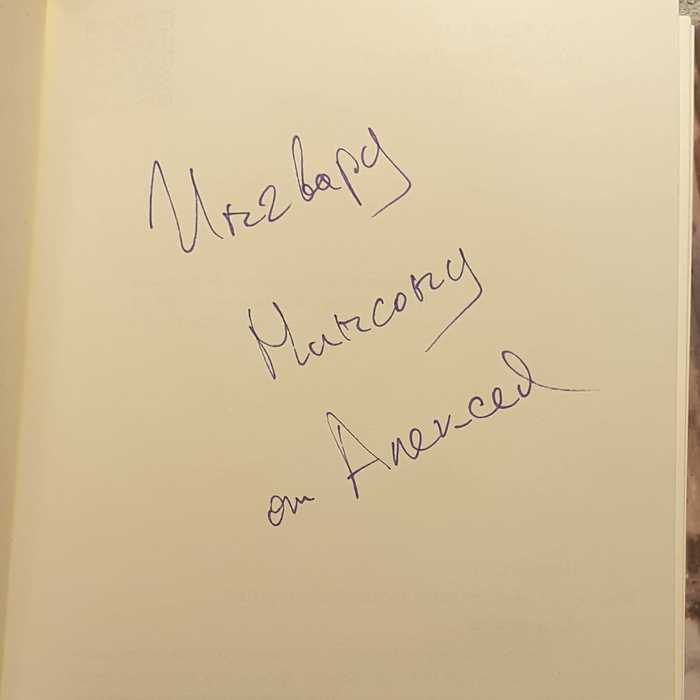 Ингвару
Мансону
от Алексея